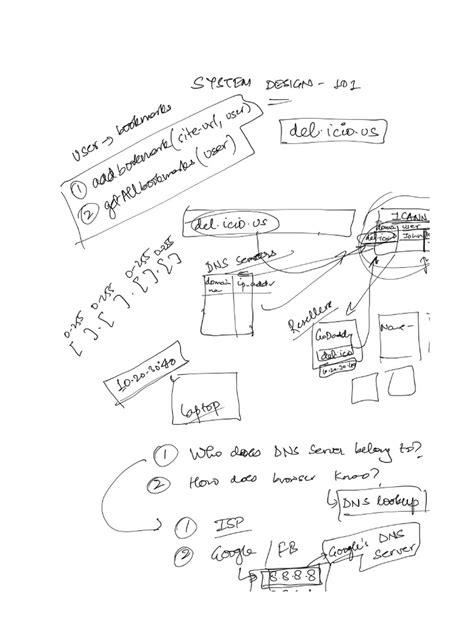 SYSTEM DESIGN - 101
del.icio.us
User → bookmarks
① addbookmark(site-url, user)
② getAllbookmarks(user)
del.icio.us
ICANN
domain user
del.icio John
0-255 0-255 0-255 0-255
[ ] . [ ] . [ ] . [ ]
DNS Servers
domain ip-addr
na
Resellers
GoDaddy
del.ico
10.20.30.40
Name-
10.20.30.40
Laptop
① Who does DNS Server belong to?
② How does browser know?
↳ DNS lookup
① ISP
② Google / FB
Google's DNS
Server
↳ 8.8.8.8